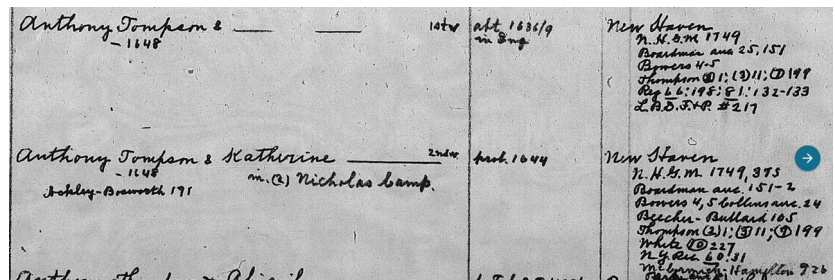 Anthony Tompson & ___ ___ 1st w abt 1636/9 New Haven
- 1648 in Eng
N.H.G.M. 1749
Boardman anc 25, 151
Bowers 4-5
Thompson (2) 1; (3) 11; (7) 199
Reg 66:198; 81:132-133
L.B.D.F.&P. #217
Anthony Tompson & Katherine ___ 2nd w. prob. 1644 New Haven
- 1648 m. (2) Nicholas Camp.
Ackley-Bosworth 191
N.H.G.M. 1749, 375
Boardman anc. 151-2
Bowers 4, 5 Collins anc. 24
Beecher-Bullard 105
Thompson (2) 1; (3) 11; (7) 199
White (10) 227
N.Y. Rec 60:31
McCormick-Hamilton
Anthony & Abigail